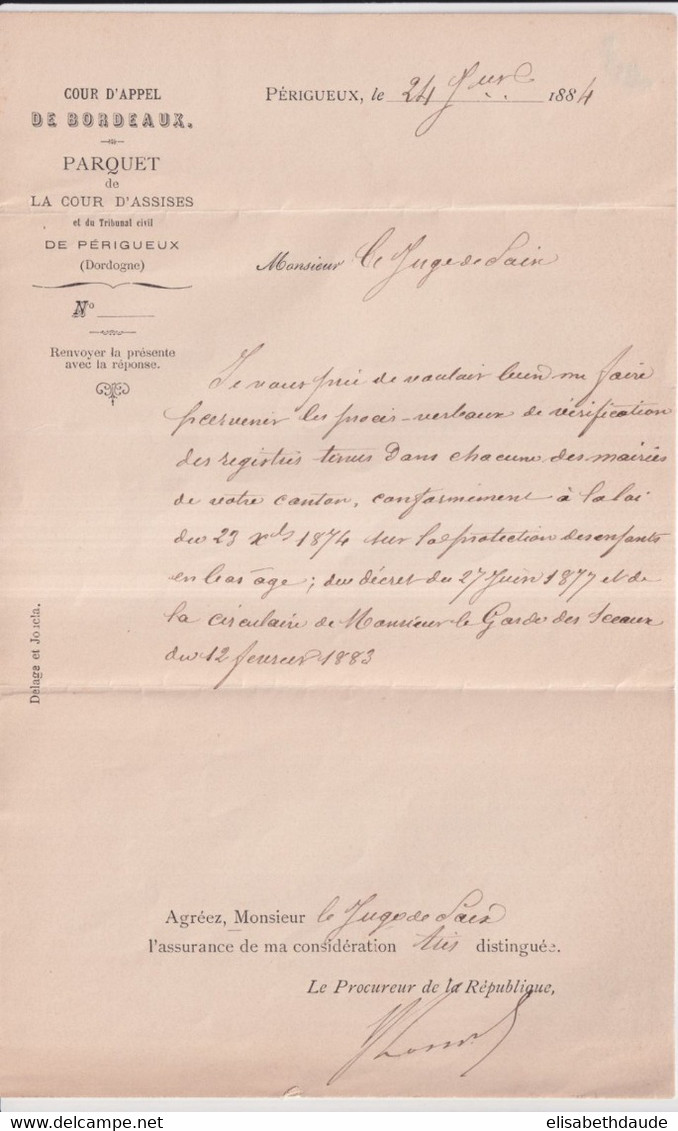 COUR D'APPEL
DE BORDEAUX.
PARQUET
de
LA COUR D'ASSISES
et du Tribunal civil
DE PÉRIGUEUX
(Dordogne)
N°
Renvoyer la présente
avec la réponse.
PÉRIGUEUX, le 24 1884
Monsieur le Juge de Paix
Je vous prie de vouloir bien me faire
parvenir les procès-verbaux de vérification
des registres tenus dans chacune des mairies
de votre canton, conformément à la loi
du 23 xbre 1874 sur la protection des enfants
en bas âge ; du décret du 27 Juin 1877 et de
la circulaire de Monsieur le Garde des Sceaux
du 12 fevrier 1883
Delage et Joucla.
Agréez, Monsieur le Juge de Paix
l'assurance de ma considération très distinguée.
Le Procureur de la République,
elisabethdaude